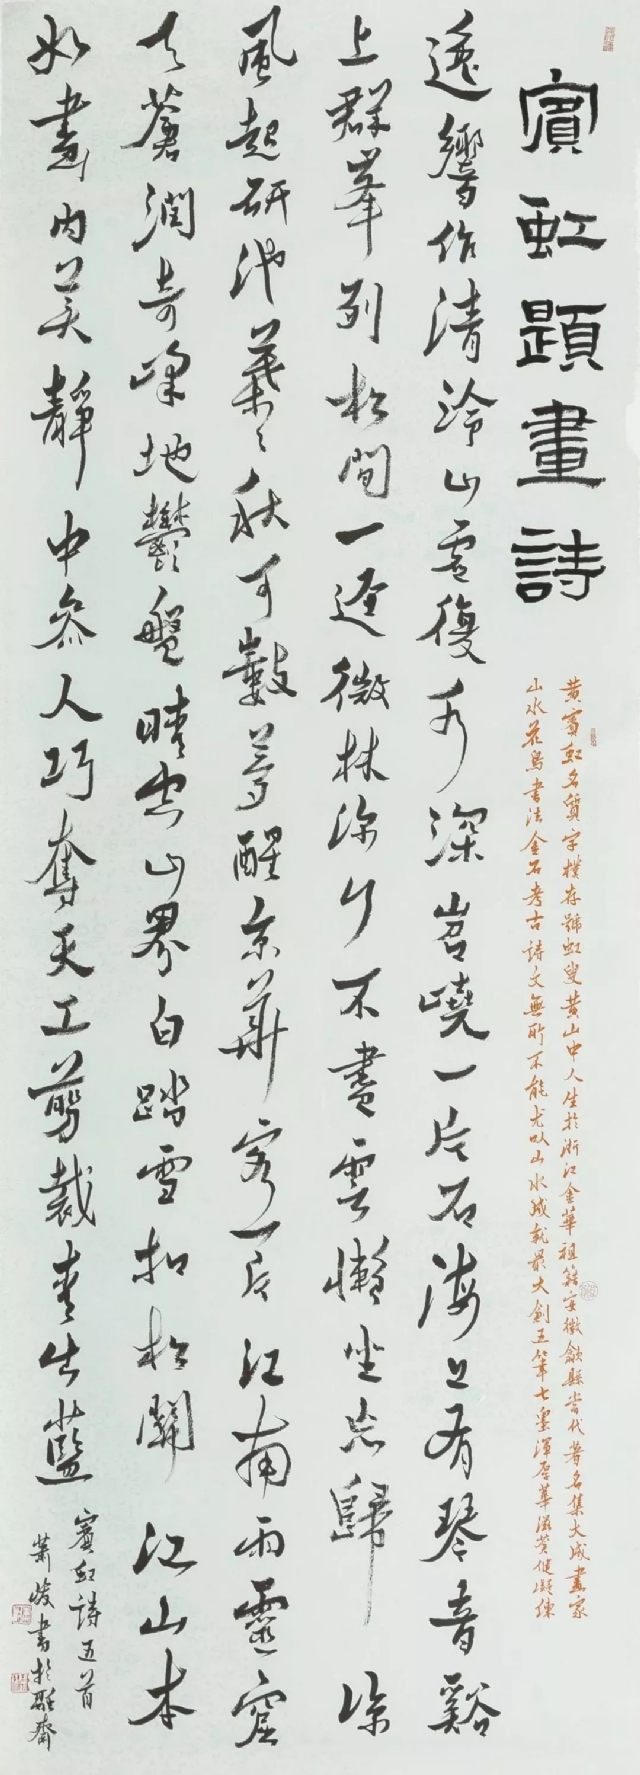 賓虹題畫詩
黄賓虹名質字樸存號虹叟黄山中人生於浙江金華祖籍安徽歙縣當代著名集大成畫家
山水花鳥書法金石考古詩文無所不能尤以山水成就最大創五筆七墨渾厚華滋蒼健凝練
逸響作清泠山虚復秀深岧嶢一片石海上有琴音谿
上群峯列松間一逕微林深行不盡雲懶坐忘歸涼
風起研池葉葉秋可數夢醒京華客一片江南雨靈窟
天蒼潤奇峰地鬱盤晴空山界白踏雪扣松關江山本
如畫内美靜中參人巧奪天工剪裁青出藍
賓虹詩五首
書於融齋